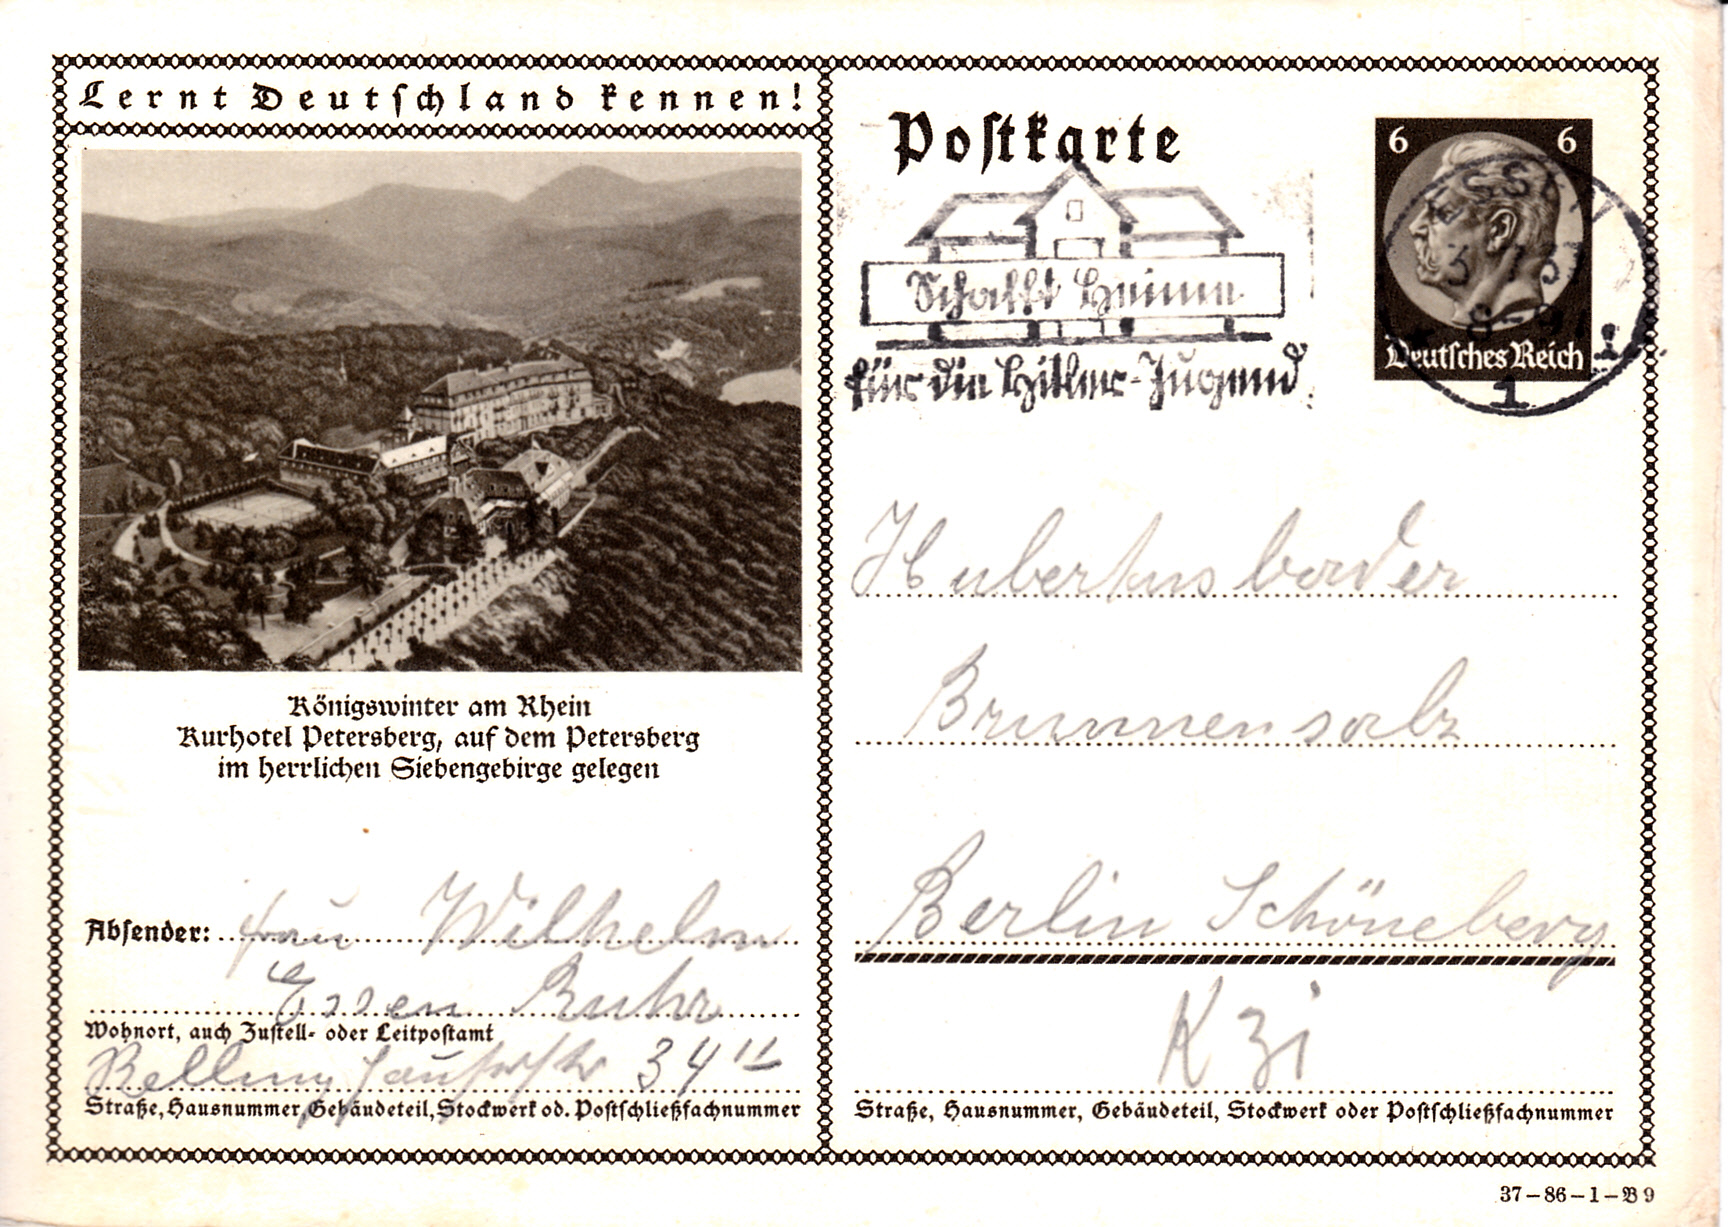 Lernt Deutschland kennen!
Königswinter am Rhein
Kurhotel Petersberg, auf dem Petersberg
im herrlichen Siebengebirge gelegen
Absender: Frau Wilhelm
Essen Ruhr
Wohnort, auch Zustell- oder Leitpostamt
34 II
Straße, Hausnummer, Gebäudeteil, Stockwerk od. Postschließfachnummer
Postkarte
Schafft Heime
für die Hitler-Jugend
6 6
Deutsches Reich
ESSEN
8-9
1
Hubertusbader
Brunnensalz
Berlin Schöneberg
Kzi
Straße, Hausnummer, Gebäudeteil, Stockwerk oder Postschließfachnummer
37-86-1-B9